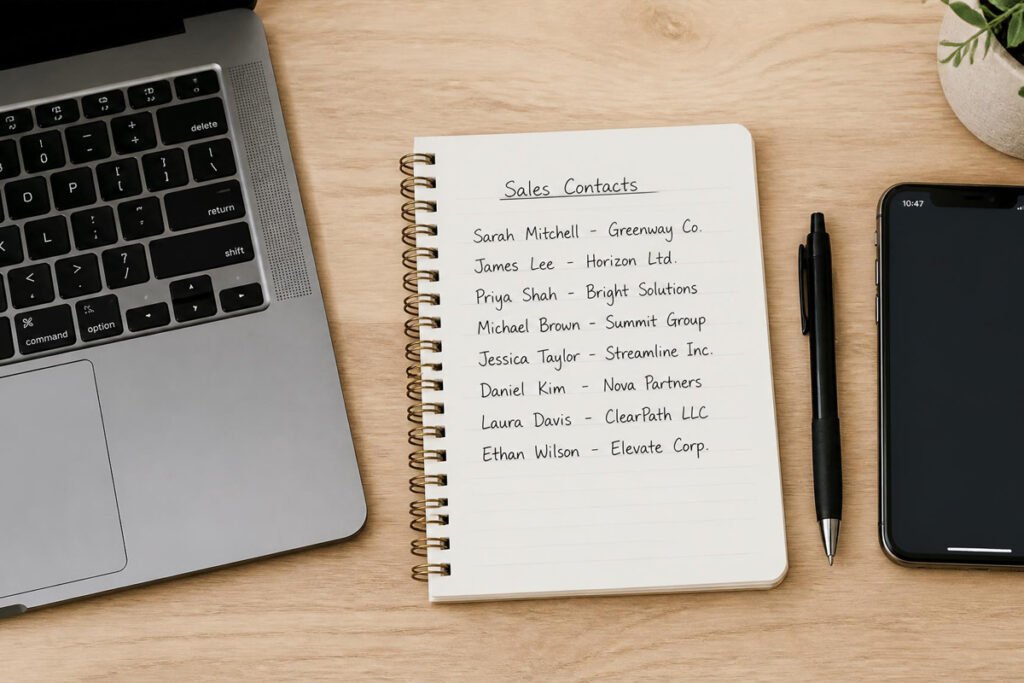 Sales Contacts
Sarah Mitchell – Greenway Co.
James Lee – Horizon Ltd.
Priya Shah – Bright Solutions
Michael Brown – Summit Group
Jessica Taylor – Streamline Inc.
Daniel Kim – Nova Partners
Laura Davis – ClearPath LLC
Ethan Wilson – Elevate Corp.
10:47
delete
return
shift
command
option
O
P
L
K